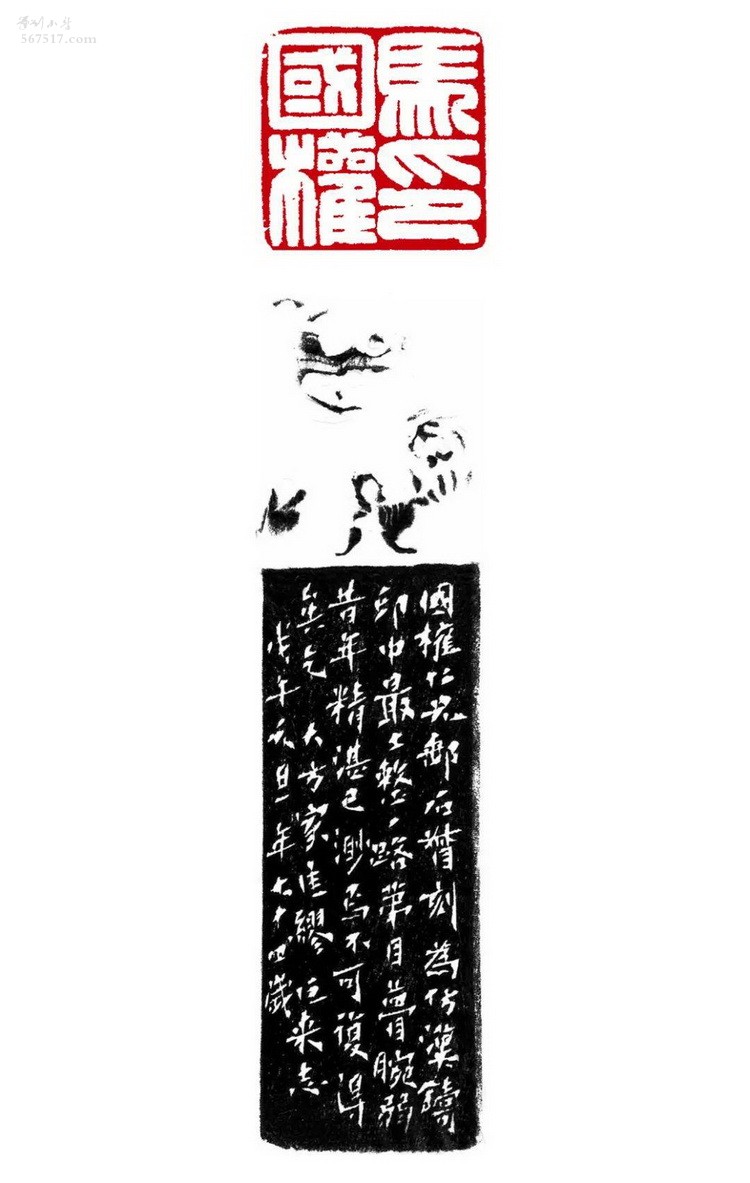 篆刻小身
567517.com
馬印
國權
國權仁兄郵石督刻為仿漢鑄
印中最工整一路第目瞢腕弱
昔年精湛已渺焉不可復得
矣乞 大方家匡繆 巨来志
戊午元旦年七十四歲